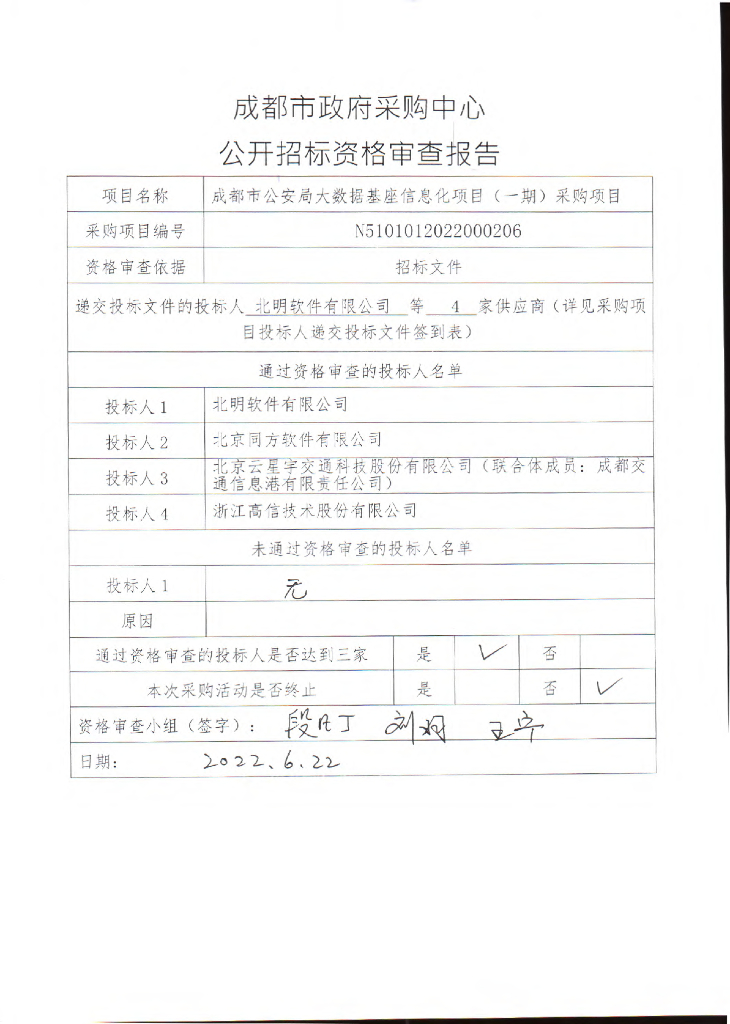 成都市政府采购中心
公开招标资格审查报告
项目名称 成都市公安局大数据基座信息化项目（一期）采购项目
采购项目编号 N5101012022000206
资格审查依据 招标文件
递交投标文件的投标人 北明软件有限公司 等 4 家供应商（详见采购项
目投标人递交投标文件签到表）
通过资格审查的投标人名单
投标人1 北明软件有限公司
投标人2 北京同方软件有限公司
投标人3 北京云星宇交通科技股份有限公司（联合体成员：成都交
通信息港有限责任公司）
投标人4 浙江高信技术股份有限公司
未通过资格审查的投标人名单
投标人1 无
原因
通过资格审查的投标人是否达到三家 是 ✓ 否
本次采购活动是否终止 是 否 ✓
资格审查小组（签字）： 段 刘 王
日期： 2022.6.22